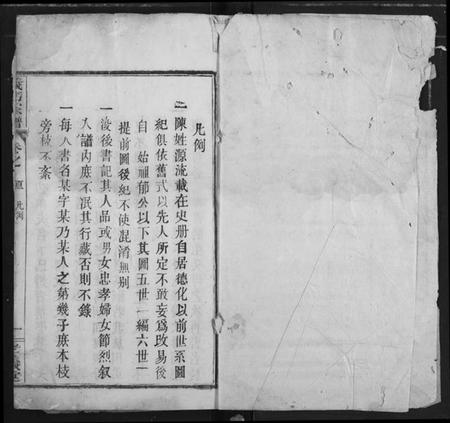 凡例
一陳姓源流載在史册自居德化以前世系圖
紀俱依舊式以先人所定不敢妄為改易後
自 始祖郁公以下其圖五世一編六世一
提前圖後紀不使混淆無别
一淩後書記其人品或男女忠孝婦女節烈叙
入譜內庶不泯其行藏否則不錄
一每人書名某字某乃某人之第幾子庶本枝
旁枝不紊
凡例